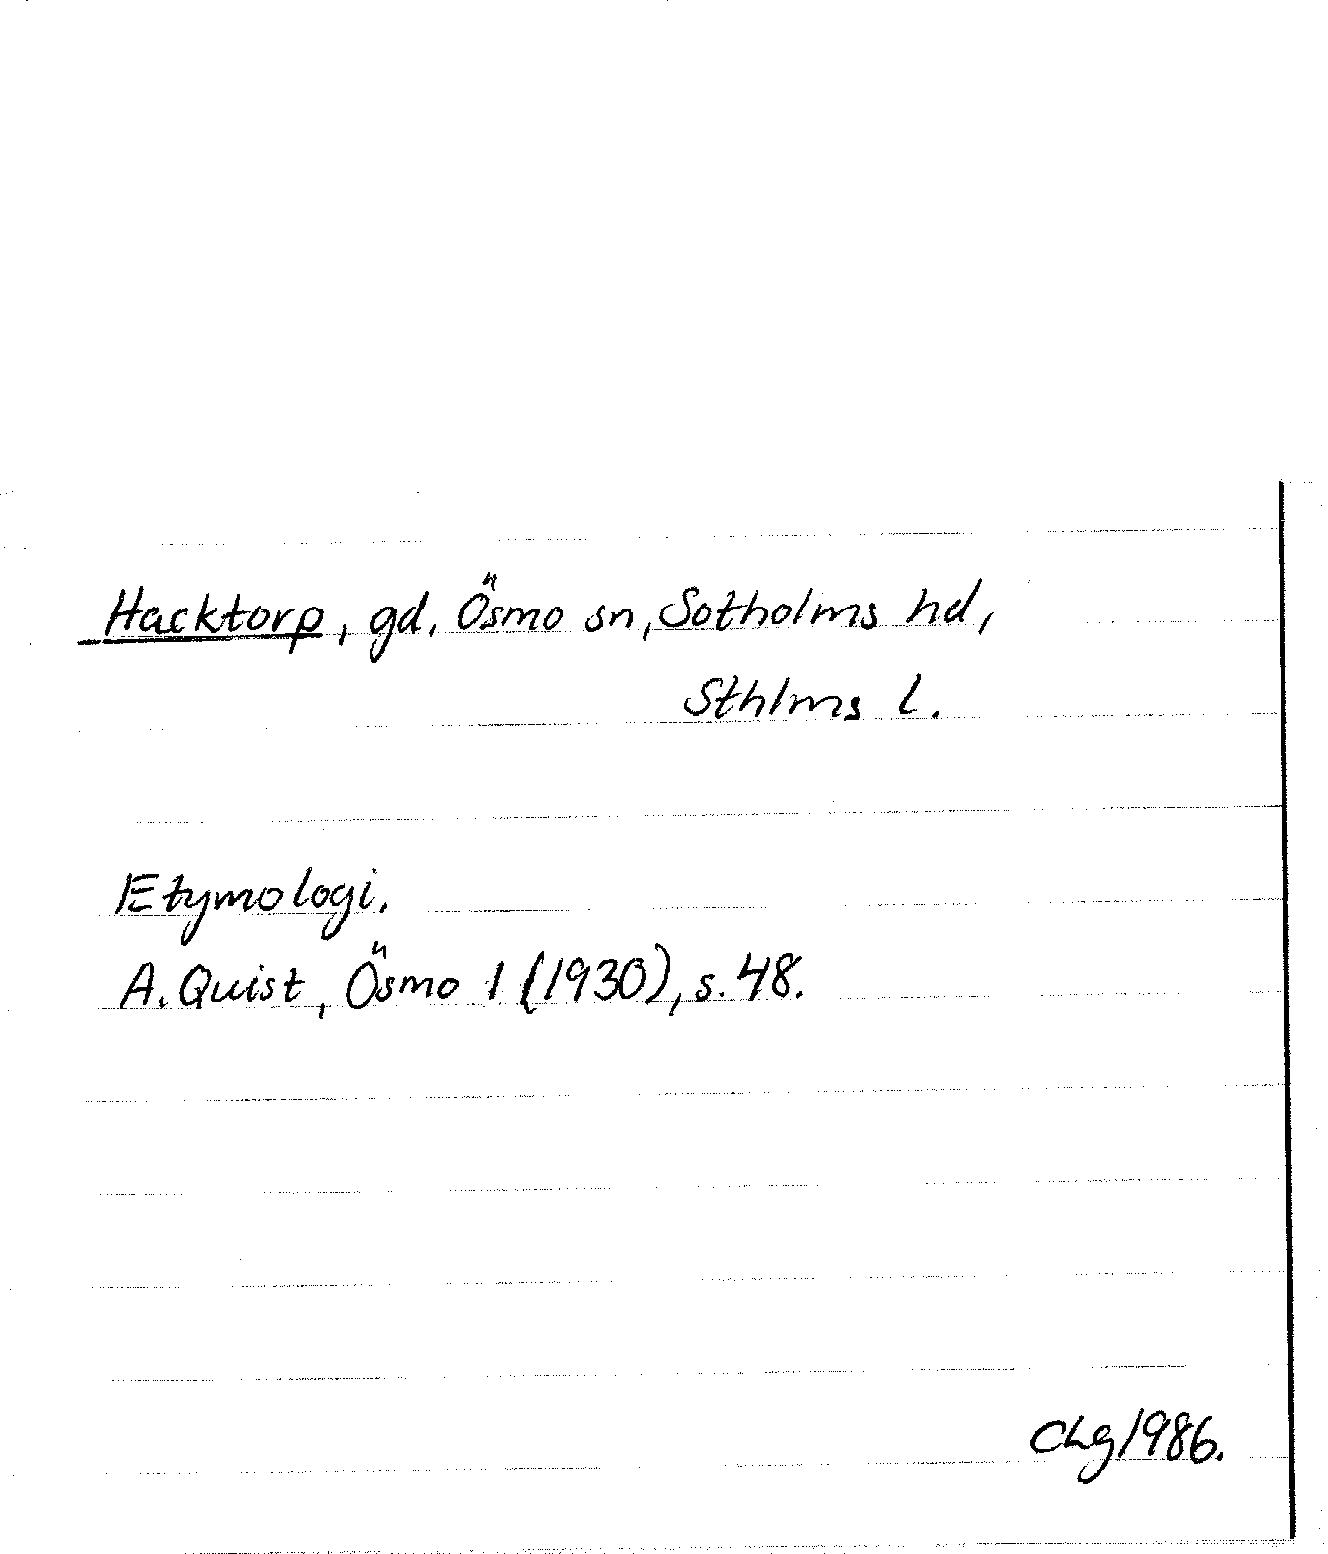 Hacktorp, gd, Ösmo sn, Sotholms hd,
Sthlms l.
Etymologi.
A. Quist, Ösmo 1 (1930), s. 48.
ChG 1986.